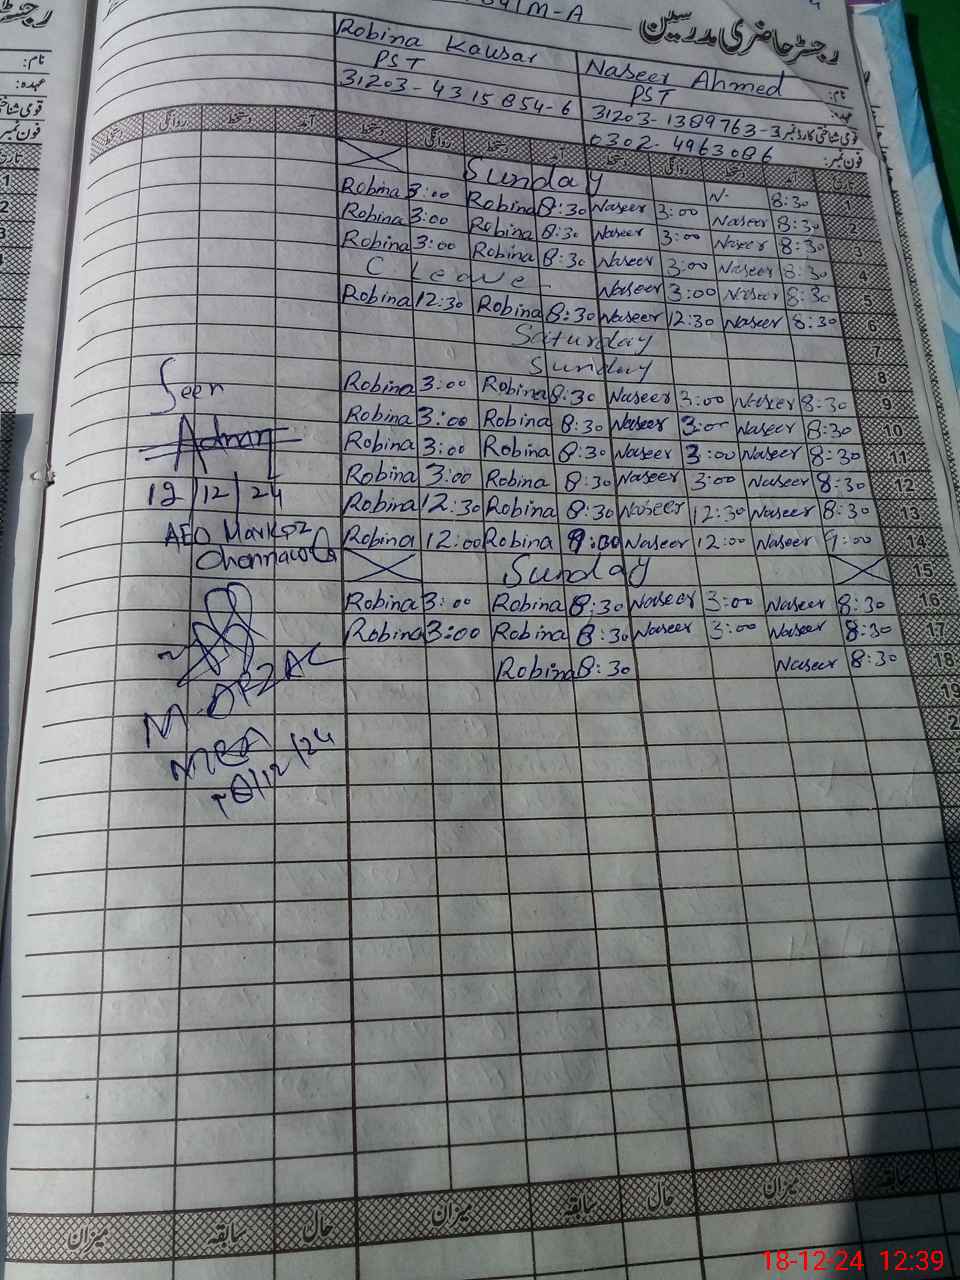 رجسٹر حاضری مدرسین
Robina Kousar
Naseer Ahmed
نام:
PST
PST
عہدہ:
31203-4315854-6
31203-1389763-3
قومی شناختی کارڈ نمبر
0302-4963086
فون نمبر:
دستخط روانگی دستخط آمد دستخط روانگی دستخط آمد دستخط روانگی دستخط آمد
Sunday 1
Robina 3:00 Robina 8:30 Naseer 3:00 N. 8:30 2
Robina 3:00 Robina 8:30 Naseer 3:00 Naseer 8:30 3
Robina 3:00 Robina 8:30 Naseer 3:00 Naseer 8:30 4
C Leave Naseer 3:00 Naseer 8:30 5
Robina 12:30 Robina 8:30 Naseer 12:30 Naseer 8:30 6
Saturday 7
Sunday 8
Robina 3:00 Robina 8:30 Naseer 3:00 Naseer 8:30 9
Robina 3:00 Robina 8:30 Naseer 3:00 Naseer 8:30 10
Robina 3:00 Robina 8:30 Naseer 3:00 Naseer 8:30 11
Robina 3:00 Robina 8:30 Naseer 3:00 Naseer 8:30 12
Robina 12:30 Robina 8:30 Naseer 12:30 Naseer 8:30 13
Robina 12:00 Robina 9:00 Naseer 12:00 Naseer 9:00 14
Sunday 15
Robina 3:00 Robina 8:30 Naseer 3:00 Naseer 8:30 16
Robina 3:00 Robina 8:30 Naseer 3:00 Naseer 8:30 17
Robina 8:30 Naseer 8:30 18
19
Seen
Adnan
12/12/24
AEO Markaz
M.
MEA
/12/24
میزان سابقہ حال میزان سابقہ حال میزان سابقہ
18-12-24 12:39